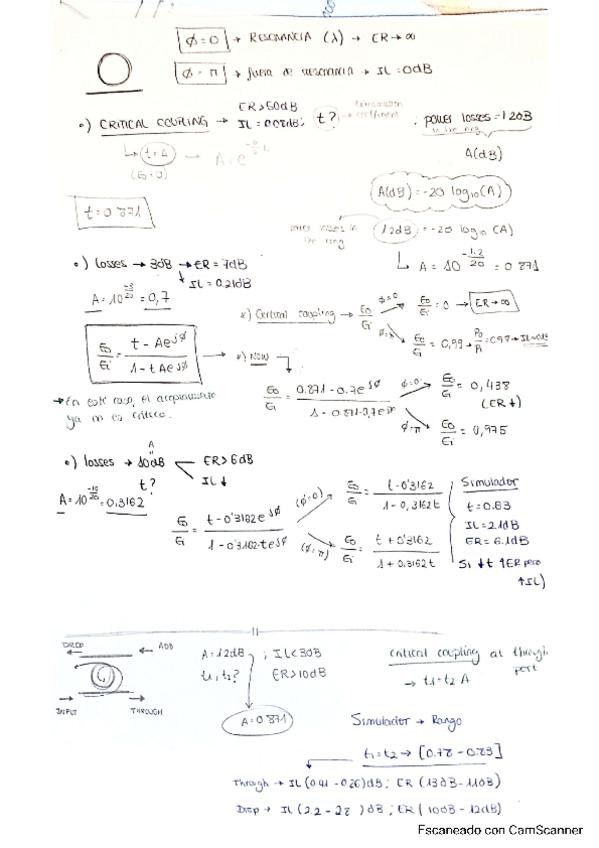 φ=0 → RESONANCIA (λ) → ER→∞
φ=π → fuera de resonancia → IL=0dB
•) CRITICAL COUPLING → ER>50dB
IL=0.08dB; t? → coefficient
power losses=1.2dB
in the ring
A(dB)
↳ t=A → A=e
(E₀=0)
A(dB)=-20 log₁₀(A)
t=0.871
power losses in the ring
1.2dB=-20 log₁₀(A)
↳ A=10^(-1.2/20)=0.871
•) losses → 3dB → ER=7dB
↓ IL=0.21dB
A=10^(-3/20)=0,7
*) Critical coupling → E₀/Eᵢ
φ=0 E₀/Eᵢ=0 → ER→∞
φ=π E₀/Eᵢ=0,99→
E₀/Eᵢ = (t-Ae^jφ)/(1-tAe^jφ)
*) NOW
E₀/Eᵢ = (0.871-0.7e^jφ)/(1-0.871·0.7e^jφ)
φ=0 E₀/Eᵢ=0,438
(ER↓)
φ=π E₀/Eᵢ=0,975
→ En este caso, el acoplamiento
ya no es crítico.
A
"
•) losses → 10dB
ER>6dB
IL↓
t?
A=10^(-10/20)=0.3162
E₀/Eᵢ = (t-0'3162e^jφ)/(1-0'3162·te^jφ)
(φ=0) E₀/Eᵢ = (t-0'3162)/(1-0,3162t)
(φ=π) E₀/Eᵢ = (t+0'3162)/(1+0,3162t)
Simulador
t=0.83
IL=2.1dB
ER=6.1dB
Si ↓t ↑ER pero
↑IL)
DROP ← ← ADD
INPUT THROUGH
A=1.2dB ; IL<3dB
t₁,t₂? ER>10dB
A=0.871
Critical coupling at through
port
→ t₁=t₂A
Simulador → Rango
t₁=t₂→ [0.78-0.83]
Through → IL(0.41-0.26)dB; ER(13dB-11dB)
Drop → IL(2.2-2.8)dB; ER(10dB-12dB)
Escaneado con CamScanner